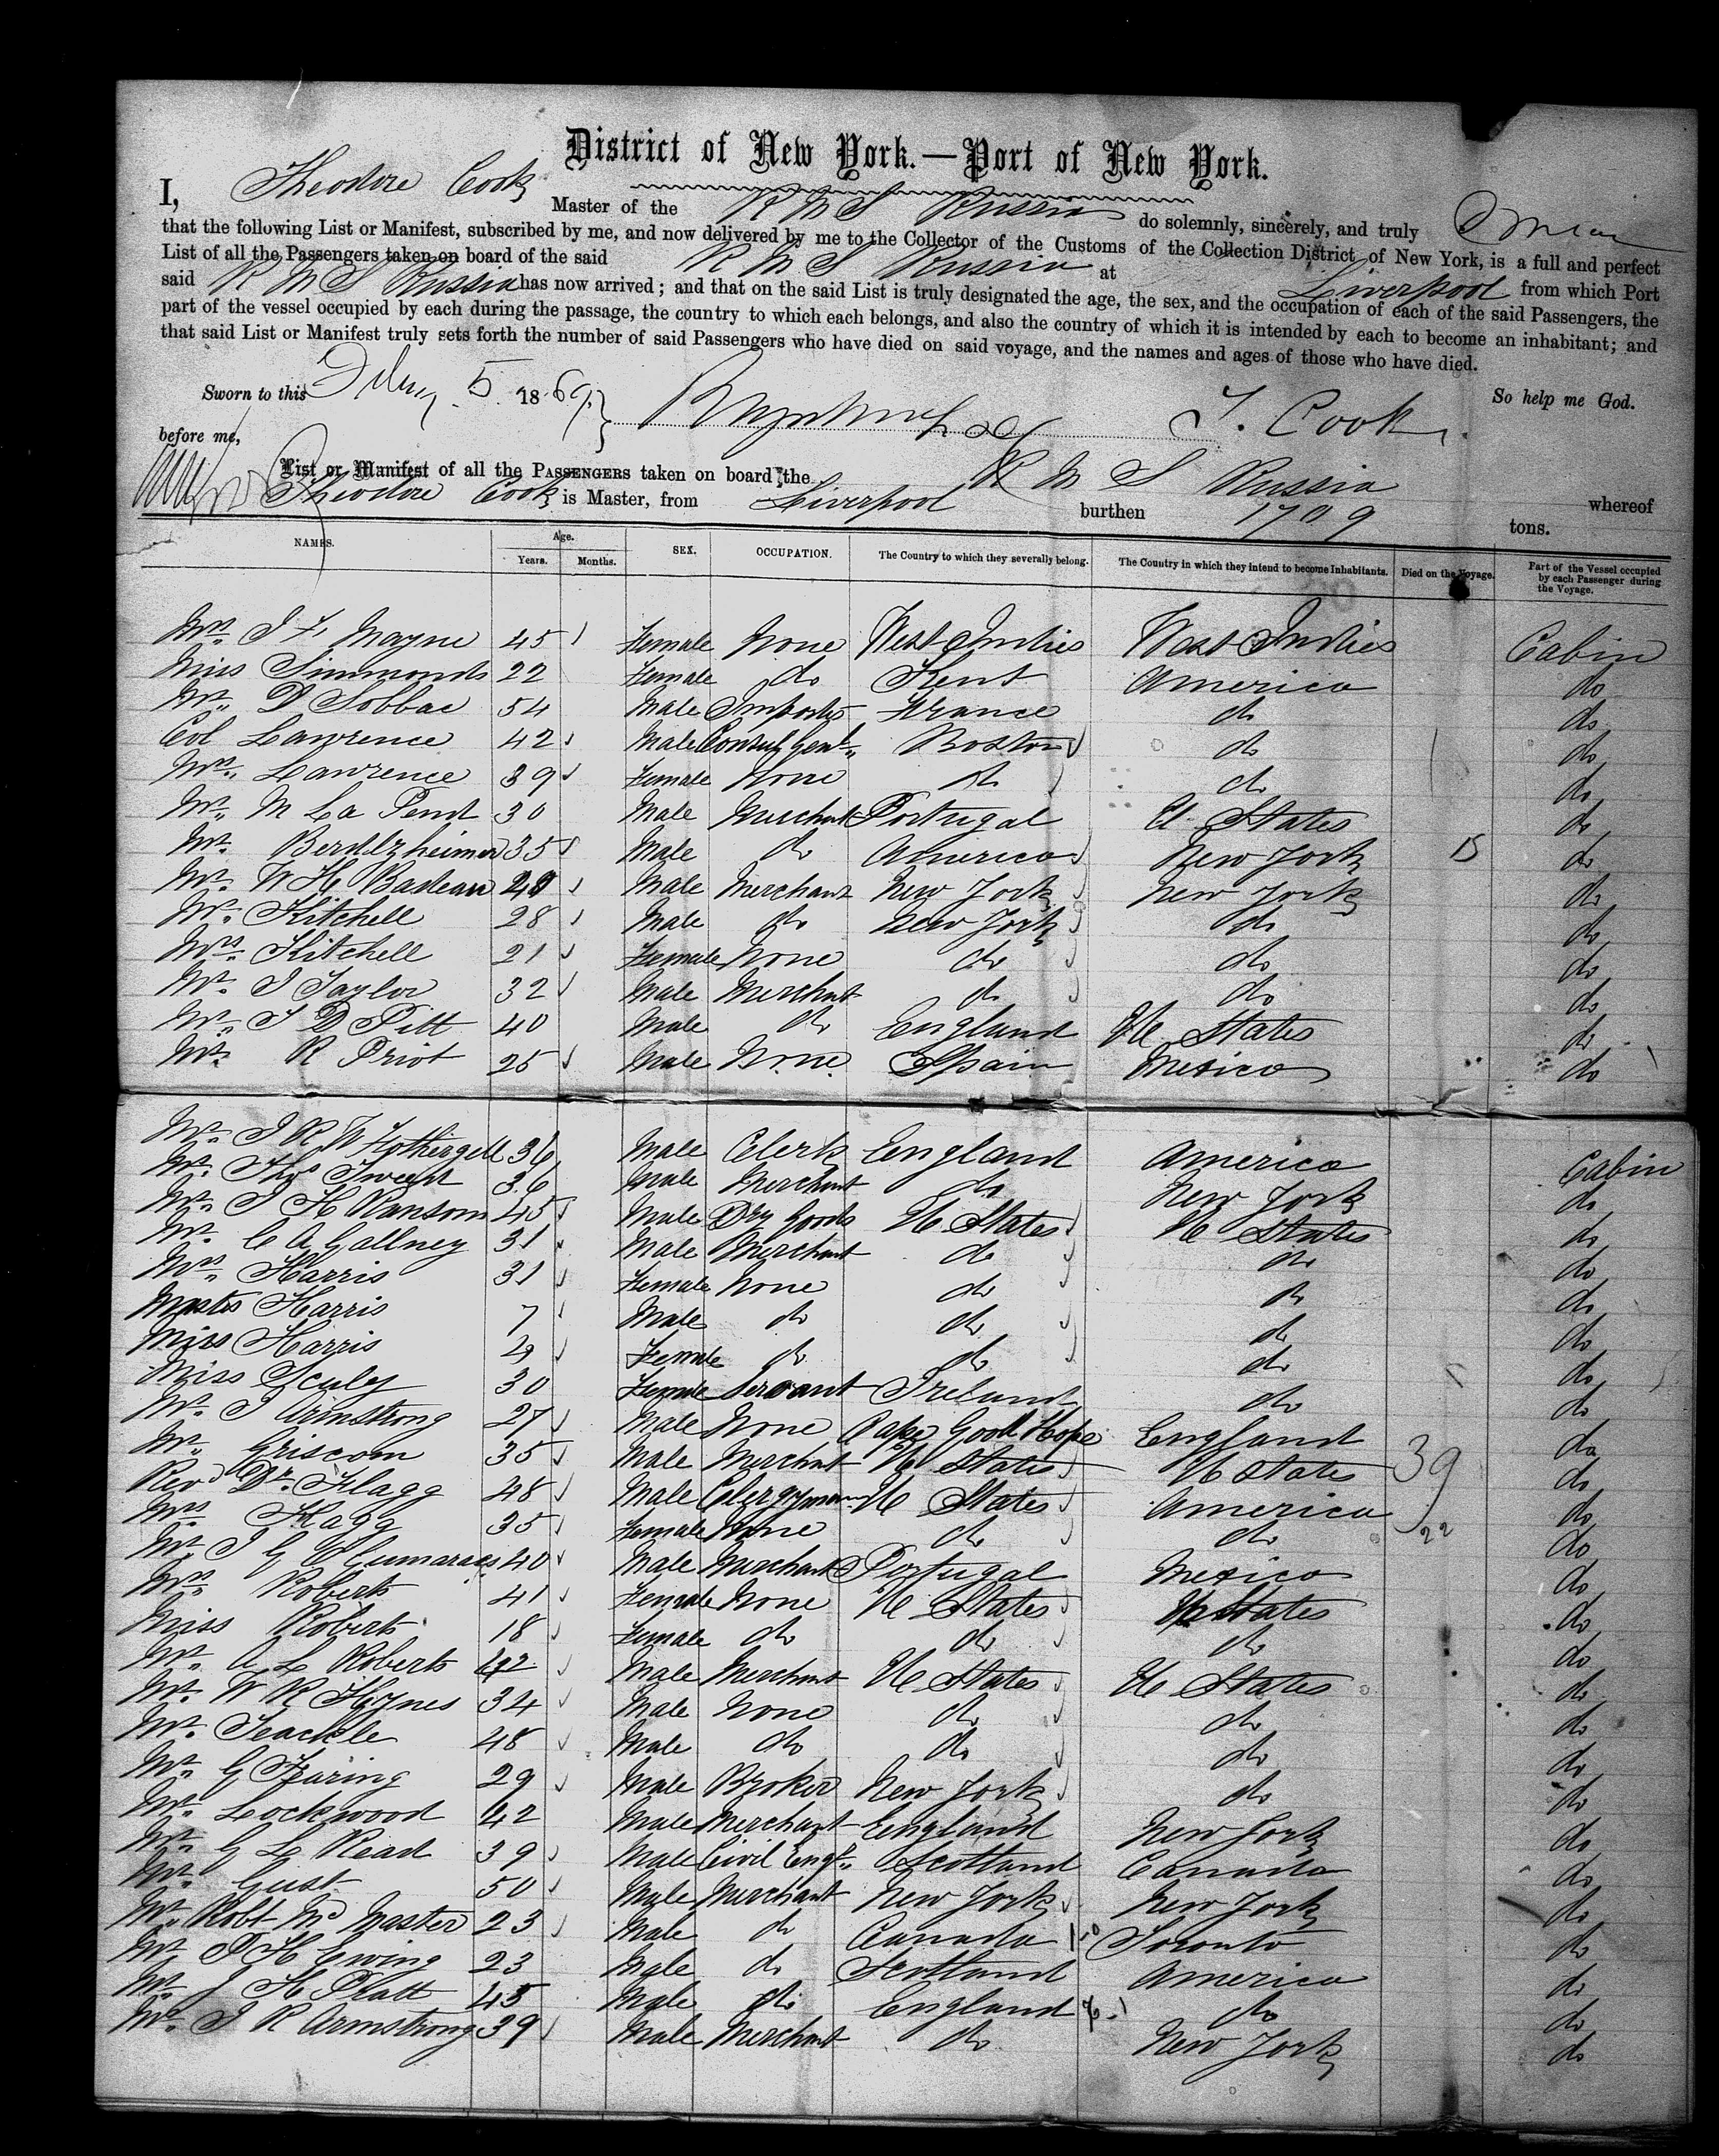 District of New York.—Port of New York.
I, Theodore Cook Master of the R M S Russia do solemnly, sincerely, and truly Swear
that the following List or Manifest, subscribed by me, and now delivered by me to the Collector of the Customs of the Collection District of New York, is a full and perfect
List of all the Passengers taken on board of the said R M S Russia at Liverpool from which Port
said R M S Russia has now arrived; and that on the said List is truly designated the age, the sex, and the occupation of each of the said Passengers, the
part of the vessel occupied by each during the passage, the country to which each belongs, and also the country of which it is intended by each to become an inhabitant; and
that said List or Manifest truly sets forth the number of said Passengers who have died on said voyage, and the names and ages of those who have died.
Sworn to this 5 1869. So help me God.
before me, T. Cook
List or Manifest of all the PASSENGERS taken on board the R M S Russia whereof
Theodore Cook is Master, from Liverpool burthen 1709 tons.
NAMES. Age. Years. Months. SEX. OCCUPATION. The Country to which they severally belong. The Country in which they intend to become Inhabitants. Died on the Voyage. Part of the Vessel occupied by each Passenger during the Voyage.
Mrs. J F Mayne 45 Female None West Indies West Indies Cabin
Miss Simmonds 22 Female do Kent America do
Mr. D Sobbac 54 Male Importer France do do
Col Lawrence 42 Male Consul Genl. Boston do do
Mrs. Lawrence 39 Female None do do do
Mr. M La Pend 30 Male Merchant Portugal U. States do
Mr. 35 Male do America New York do
Mr. W H 40 Male Merchant New York New York do
Mr. Kitchell 28 Male do New York do do
Mrs. Kitchell 21 Female None do do do
Mr. J Taylor 32 Male Merchant do do do
Mr. J D Pitt 40 Male do England U States do
Mr. R Priot 25 Male None Spain Mexico do
Mr. J R W Fothergell 36 Male Clerk England America Cabin
Mr. Thos Sweet 36 Male Merchant do New York do
Mr. J H Ransom 45 Male Dry Goods U States U States do
Mr. C A Gallney 31 Male Merchant do do do
Mrs. Harris 31 Female None do do do
Master Harris 7 Male do do do do
Miss Harris 4 Female do do do do
Miss Sculy 30 Female Servant Ireland do do
Mr. J Armstrong 27 Male None Cape Good Hope England do
Mr. Griscom 35 Male Merchant U States U States 39 do
Revd Dr. Flagg 48 Male Clergyman U States America do
Mrs. Flagg 35 Female None do do 22 do
Mr. J G 40 Male Merchant Portugal Mexico do
Mrs. Roberts 41 Female None U States U States do
Miss Roberts 18 Female do do do do
Mr. A L Roberts 42 Male Merchant U States U States do
Mr. W R Hynes 34 Male None do do do
Mr. Teackle 48 Male do do do do
Mr. G Fearing 29 Male Broker New York do do
Mr. Lockwood 42 Male Merchant England New York do
Mr. G L Read 39 Male Civil Engr. Scotland Canada do
Mr. Gust 50 Male Merchant New York New York do
Mr. Robt Mc Master 23 Male do Canada Toronto do
Mr. P H Ewing 23 Male do Scotland America do
Mr. J H Platt 45 Male do England do do
Mr. J R Armstrong 39 Male Merchant do New York do